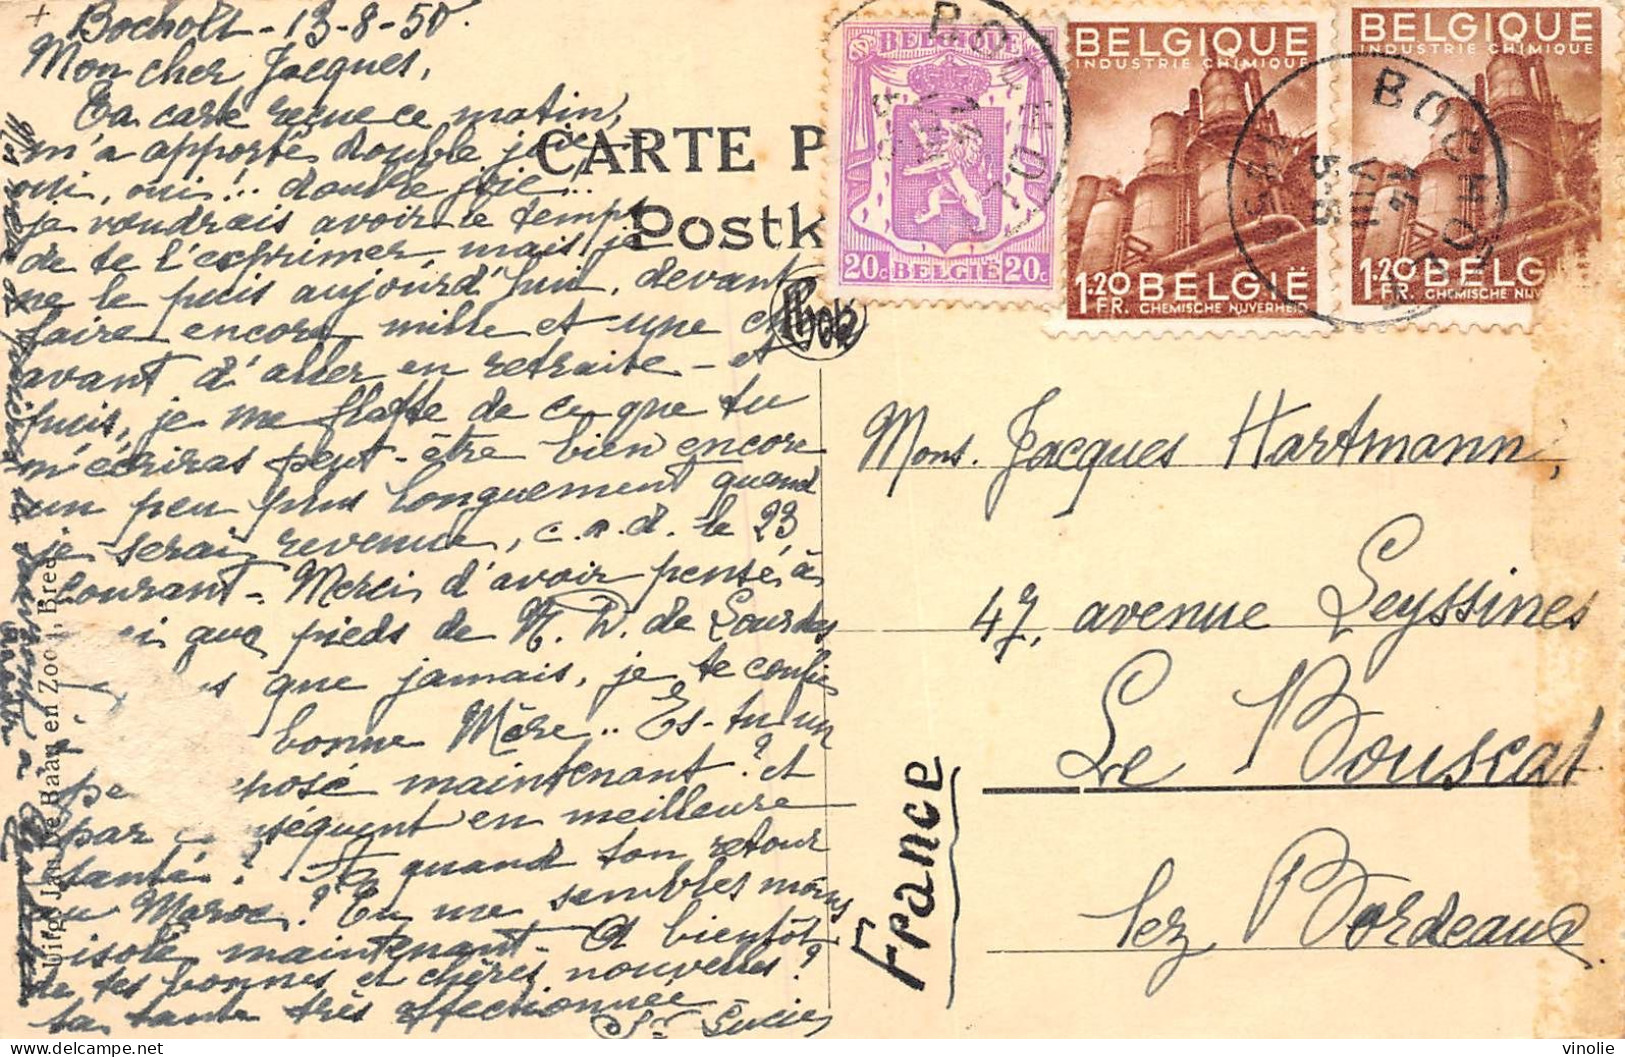 Bocholt - 13-8-50.
Mon cher Jacques,
Ta carte reçue ce matin,
m'a apporté double joie,
oui, oui!.. double joie!..
je voudrais avoir le temps
de te l'exprimer, mais je
ne le puis aujourd'hui, devant
faire encore mille et une
avant d'aller en retraite - et
puis, je me flatte de ce que tu
m'écriras peut-être bien encore
un peu plus longuement quand
je serai revenue, c.a.d. le 23
courant. Merci d'avoir pensé à
aux pieds de N. D. de Lourdes
que jamais, je te confie
bonne Mère.. Es-tu un
posé maintenant? et
par conséquent en meilleure
santé? Et quand ton retour
au Maroc? Tu me sembles moins
isolé maintenant. A bientôt
de tes bonnes et chères nouvelles?
ta tante très affectionnée
Sr Lucie
Uitg. Jan De Baan en Zoon, Bree
CARTE P
Postk
BELGIQUE
20c BELGIË 20c
BELGIQUE
INDUSTRIE CHIMIQUE
1.20 FR. BELGIË
CHEMISCHE NIJVERHEID
BELGIQUE
INDUSTRIE CHIMIQUE
1.20 FR. BELG
CHEMISCHE NIJV
BOCHOLT
BOCHOLT
14
VIII
5-6
Mons. Jacques Hartmann,
47, avenue Leyssines
Le Bouscat
lez Bordeaux
France
vinolie